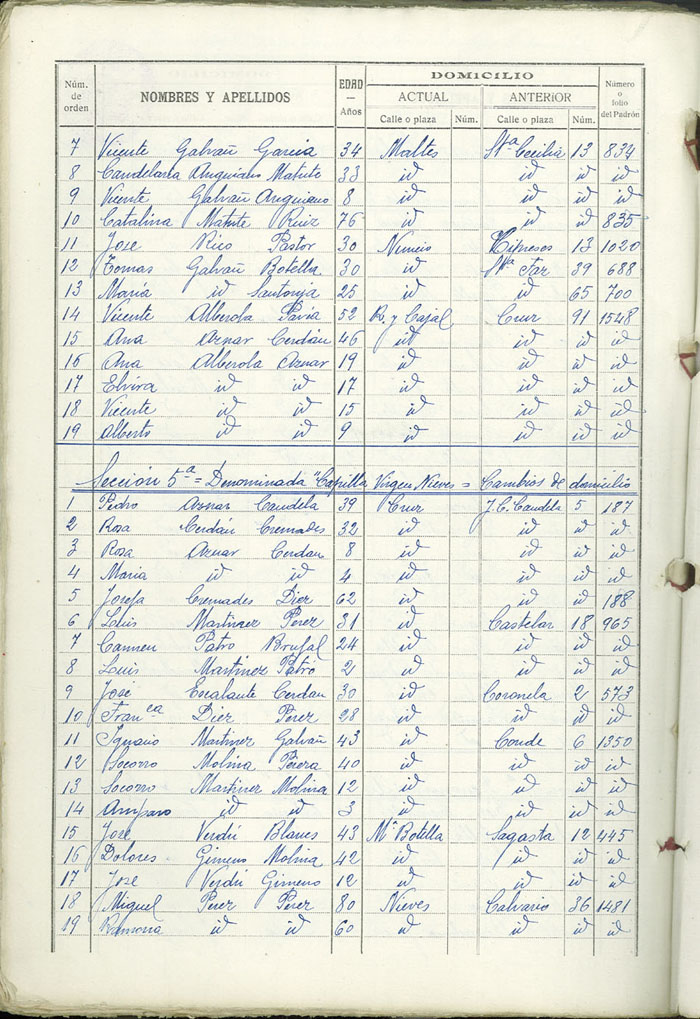 Núm. de orden NOMBRES Y APELLIDOS EDAD — Años DOMICILIO Número o folio del Padrón
ACTUAL ANTERIOR
Calle o plaza Núm. Calle o plaza Núm.
7 Vicente Galvañ Garcia 34 Maltes Sta Cecilia 13 834
8 Candelaria Anguiano Matute 33 id id id id
9 Vicente Galvañ Anguiano 8 id id id id
10 Catalina Matute Ruiz 76 id id id 835
11 Jose Rico Pastor 30 Nuncio Cipreses 13 1020
12 Tomas Galvañ Botella 30 id Sta Faz 39 688
13 María id Santonja 25 id id 65 700
14 Vicente Alberola Pavía 52 R. y Cajal Cruz 91 1548
15 Ana Aznar Cerdán 46 id id id id
16 Ana Alberola Aznar 19 id id id id
17 Elvira id id 17 id id id id
18 Vicente id id 15 id id id id
19 Alberto id id 9 id id id id
Sección 5ª = Denominada "Capilla Virgen Nieves = Cambios de domicilio
1 Pedro Aznar Candela 39 Cruz J. C. Candela 5 187
2 Rosa Cerdán Cremades 32 id id id id
3 Rosa Aznar Cerdan 8 id id id id
4 Maria id id 4 id id id id
5 Josefa Cremades Diez 62 id id id 188
6 Luis Martinez Perez 31 id Castelar 18 965
7 Carmen Patro Brufal 24 id id id id
8 Luis Martinez Patró 2 id id id id
9 José Escalante Cerdan 30 id Coronela 2 573
10 Franca Diez Perez 28 id id id id
11 Ignacio Martinez Galvañ 43 id Conde 6 1350
12 Socorro Molina 40 id id id id
13 Socorro Martinez Molina 12 id id id id
14 Amparo id id 3 id id id id
15 José Verdú Blanes 43 Mº Botella Sagasta 12 445
16 Dolores Gimeno Molina 42 id id id id
17 Jose Verdú Gimeno 12 id id id id
18 Miguel Perez Perez 80 Nieves Calvario 36 1481
19 Ramona id id 60 id id id id